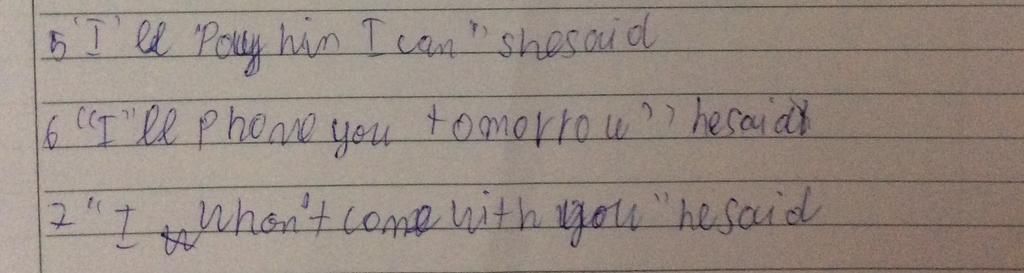 5 "I'll Pay him I can" she said
6 "I"ll phone you tomorrow" he said
7 "I whon't come with you" he said